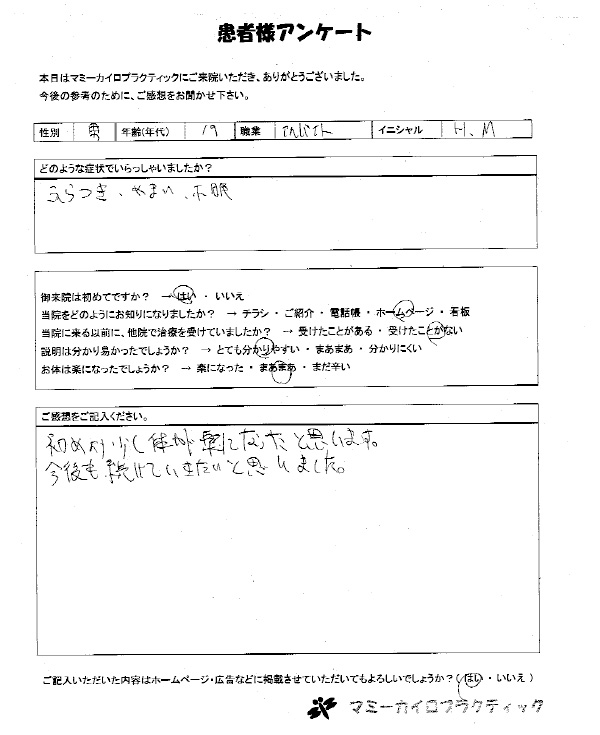 患者様アンケート
本日はマミーカイロプラクティックにご来院いただき、ありがとうございました。
今後の参考のために、ご感想をお聞かせ下さい。
性別 男 年齢(年代) 19 職業 アルバイト イニシャル H.M
どのような症状でいらっしゃいましたか?
ふらつき、めまい、不眠
御来院は初めてですか? → はい ・ いいえ
当院をどのようにお知りになりましたか? → チラシ ・ ご紹介 ・ 電話帳 ・ ホームページ ・ 看板
当院に来る以前に、他院で治療を受けていましたか? → 受けたことがある ・ 受けたことがない
説明は分かり易かったでしょうか? → とても分かりやすい ・ まあまあ ・ 分かりにくい
お体は楽になったでしょうか? → 楽になった ・ まあまあ ・ まだ辛い
ご感想をご記入ください。
初めより少し体が楽になったと思います。
今後も続けていきたいと思いました。
ご記入いただいた内容はホームページ・広告などに掲載させていただいてもよろしいでしょうか?( はい ・ いいえ )
マミーカイロプラクティック